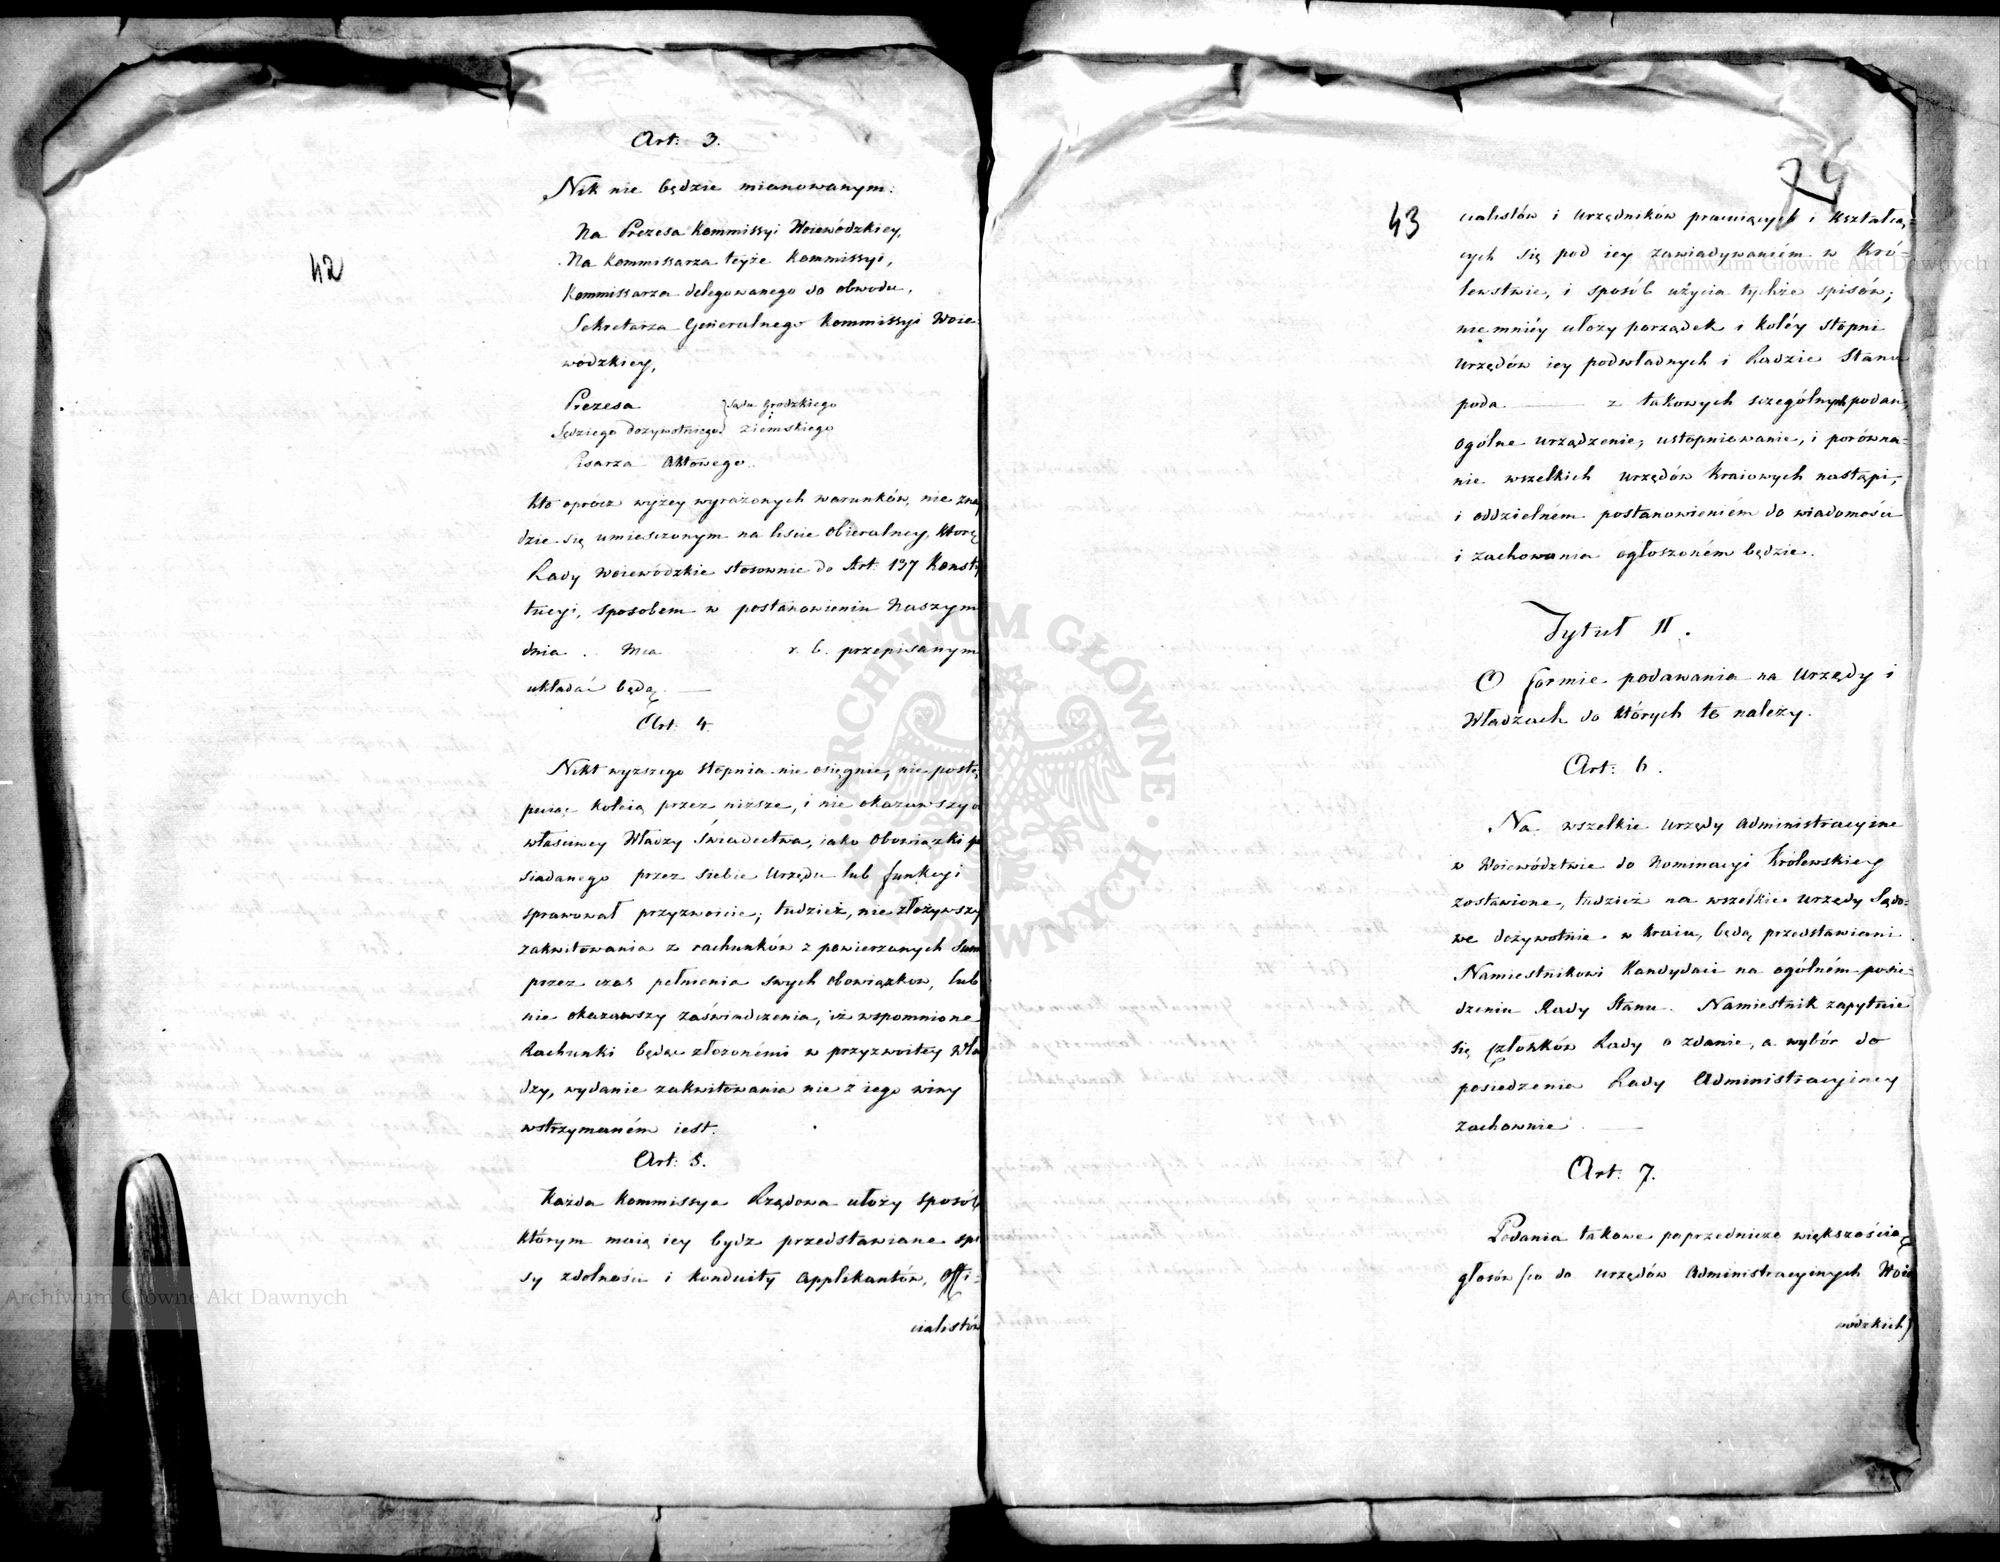 42
Art: 3.
Nik nie będzie mianowanym:
Na Prezesa Kommissyi Woiewódzkiey,
Na Kommissarza teyże Kommissyi,
Kommissarza delegowanego do obwodu,
Sekretarza Generalnego Kommissyi Woie-
wódzkiey,
Prezesa } Sądu Grodzkiego
Sędziego dożywotniego } Ziemskiego
Pisarza Aktowego.
kto oprócz wyżey wyrażonych warunków, nie znay
dzie się umieszczonym na liście obieralney, którą
Rady Woiewódzkie stosownie do Art: 137 Konsty
tucyi, sposobem w postanowieniu Naszym
dnia . Mca r. b. przepisanym
układać będą. —
Art: 4.
Nikt wyższego stopnia nie osięgnie, nie postę
puiąc koleią przez niższe, i nie okazawszy od
właściwey Władzy Świadectwa, iako obowiązki po
siadanego przez siebie Urzędu lub funkcyi
sprawował przyzwoicie; tudzież, nie złożywszy
zakwitowania z rachunków z powierzonych Summ
przez czas pełnienia swych obowiązków, lub
nie okazawszy zaświadczenia, iż wspomnione
Rachunki będąc złożonémi w przyzwoitey Wła
dzy, wydanie zakwitowania nie z iego winy
wstrzymaném iest.
Art: 5.
Każda Kommissya Rządowa ułoży sposób
którym maią iey bydz przedstawiane spi
sy zdolności i konduity Applikantów, Offi-
cialistów
74
43
cialistów i Urzędników pracuiących i kształcą-
cych się pod iey zawiadywaniem w Kró-
lestwie, i sposób użycia tychże spisów;
niemniéy ułoży porządek i koléy stopni
Urzędów iey podwładnych i Radzie Stanu
poda. — z takowych szczególnych podań,
ogólne urządzenie, ustopniowanie, i porówna-
nie wszelkich Urzędów Kraiowych nastąpi,
i oddzielném postanowieniém do wiadomości
i zachowania ogłoszoném będzie.
Tytuł II.
O formie podawania na Urzędy i
Władzach do których to należy.
Art: 6.
Na wszelkie Urzędy Administracyine
w Woiewództwie do Nominacyi Królewskiey
zostawione, tudzież na wszelkie Urzędy Sądo-
we dożywotnie w Kraiu, będą przedstawiani
Namiestnikowi Kandydaci na ogólném posie-
dzeniu Rady Stanu. Namiestnik zapytnie
się Członków Rady o zdanie, a wybór do
posiedzenia Rady Administracyiney
zachownie. —
Art: 7.
Podania takowe poprzedniczo większością
głosów (co do Urzędów Administracyinych Woie
wódzkich)